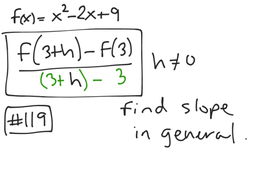 f(x) = x²-2x+9
f(3+h) - f(3)
(3+h) - 3
h≠0
#119
find slope
in general.